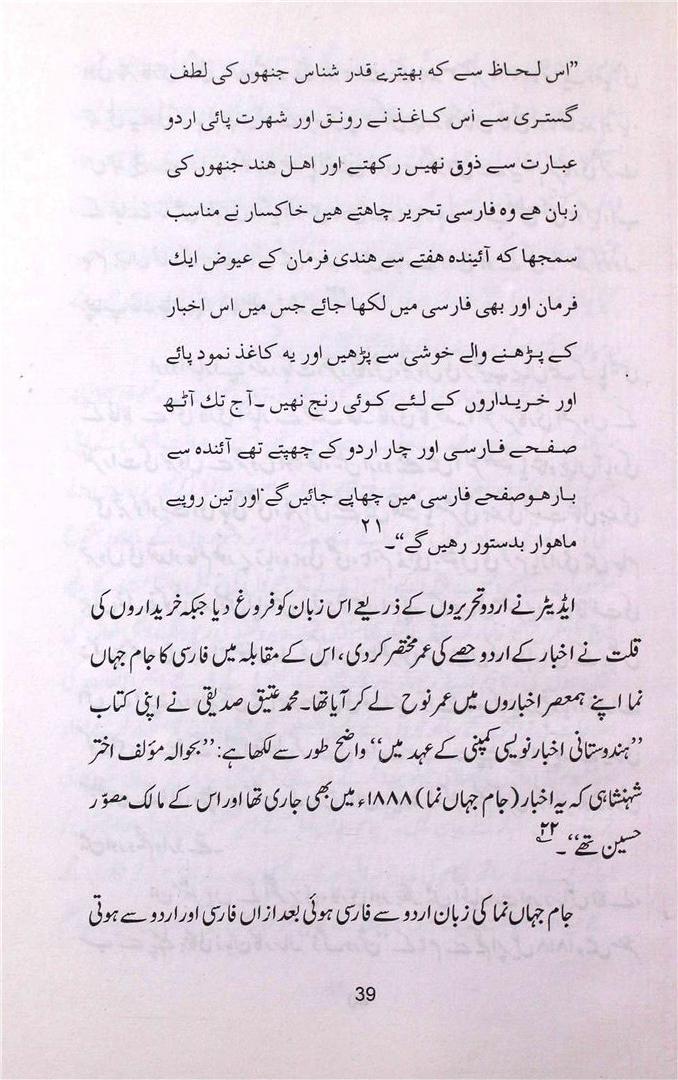 ”اس لحاظ سے کہ بھیترے قدر شناس جنھوں کی لطف
گستری سے اس کاغذ نے رونق اور شہرت پائی اردو
عبارت سے ذوق نھیں رکھتے اور اھل ھند جنھوں کی
زبان ھے وہ فارسی تحریر چاھتے ھیں خاکسار نے مناسب
سمجھا کہ آئیندہ ھفتے سے ھندی فرمان کے عیوض ایک
فرمان اور بھی فارسی میں لکھا جائے جس میں اس اخبار
کے پڑھنے والے خوشی سے پڑھیں اور یہ کاغذ نمود پائے
اور خریداروں کے لئے کوئی رنج نھیں ۔ آج تک آٹھ
صفحے فارسی اور چار اردو کے چھپتے تھے آئندہ سے
بارھو صفحے فارسی میں چھاپے جائیں گے اور تین روپیے
ماھوار بدستور رھیں گے“۔ ۲۱
ایڈیٹر نے اردو تحریروں کے ذریعے اس زبان کو فروغ دیا جبکہ خریداروں کی
قلت نے اخبار کے اردو حصے کی عمر مختصر کر دی، اس کے مقابلہ میں فارسی کا جام جہاں
نما اپنے ہمعصر اخباروں میں عمر نوح لے کر آیا تھا۔ محمد عتیق صدیقی نے اپنی کتاب
”ہندوستانی اخبار نویسی کمپنی کے عہد میں“ واضح طور سے لکھا ہے: ”بحوالہ مؤلف اختر
شہنشاہی کہ یہ اخبار (جام جہاں نما) ۱۸۸۸ء میں بھی جاری تھا اور اس کے مالک مصوّر
حسین تھے“۔ ۲۲
جام جہاں نما کی زبان اردو سے فارسی ہوئی بعد ازاں فارسی اور اردو سے ہوتی
39